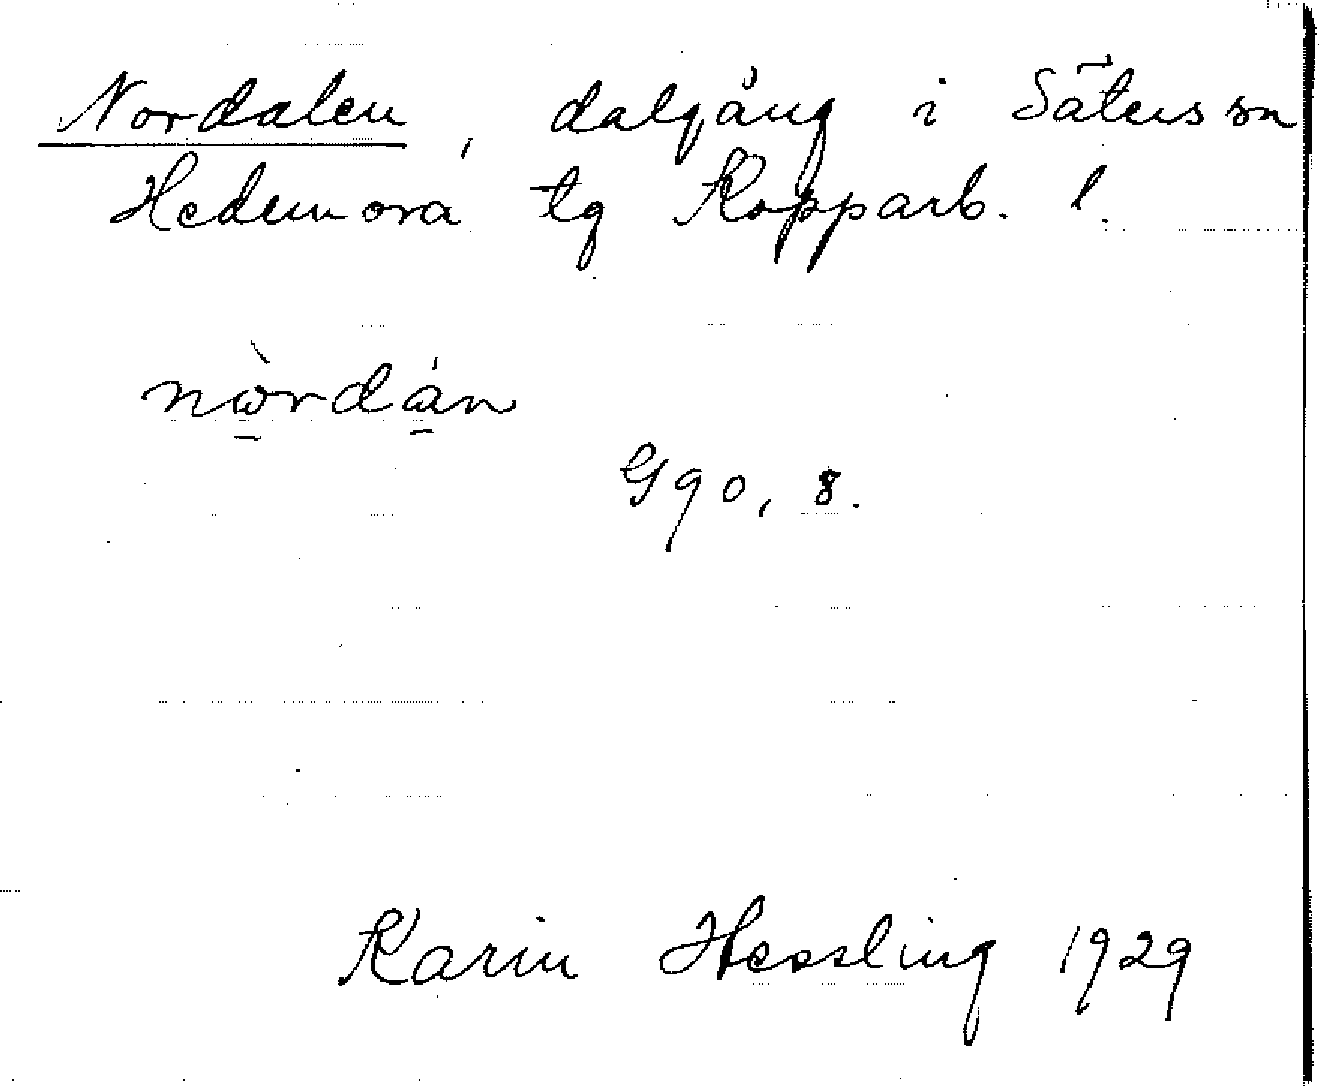 Nordalen, dalgång i Säters sn
Hedemora tg Kopparb. l.
nò̱rdá̱n
G90, 8.
Karin Hessling 1929